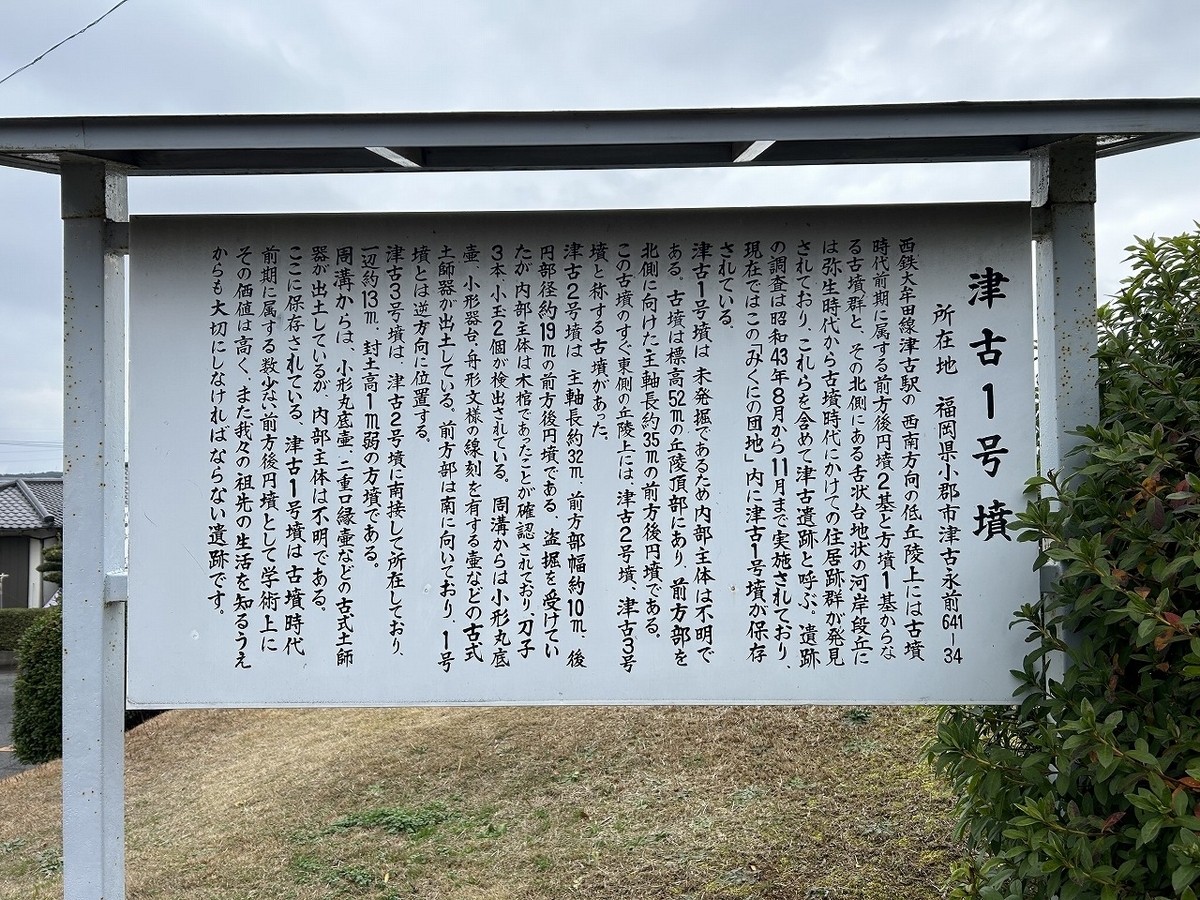 津古1号墳
所在地　福岡県小郡市津古永前641-34
西鉄大牟田線津古駅の西南方向の低丘陵上には古墳
時代前期に属する前方後円墳2基と方墳1基からな
る古墳群と、その北側にある舌状台地状の河岸段丘に
は弥生時代から古墳時代にかけての住居跡群が発見
されており、これらを含めて津古遺跡と呼ぶ。遺跡
の調査は昭和43年8月から11月まで実施されており、
現在ではこの「みくにの団地」内に津古1号墳が保存
されている。
津古1号墳は未発掘であるため内部主体は不明で
ある。古墳は標高52mの丘陵頂部にあり、前方部を
北側に向けた主軸長約35mの前方後円墳である。
この古墳のすぐ東側の丘陵上には、津古2号墳、津古3号
墳と称する古墳があった。
津古2号墳は、主軸長約32m、前方部幅約10m、後
円部径約19mの前方後円墳である。盗掘を受けてい
たが内部主体は木棺であったことが確認されており、刀子
3本、小玉2個が検出されている。周溝からは小形丸底
壷、小形器台、舟形文様の線刻を有する壷などの古式
土師器が出土している。前方部は南に向いており、1号
墳とは逆方向に位置する。
津古3号墳は、津古2号墳に南接して所在しており、
一辺約13m、封土高1m弱の方墳である。
周溝からは、小形丸底壷、二重口縁壷などの古式土師
器が出土しているが、内部主体は不明である。
ここに保存されている、津古1号墳は古墳時代
前期に属する数少ない前方後円墳として学術上に
その価値は高く、また我々の祖先の生活を知るうえ
からも大切にしなければならない遺跡です。